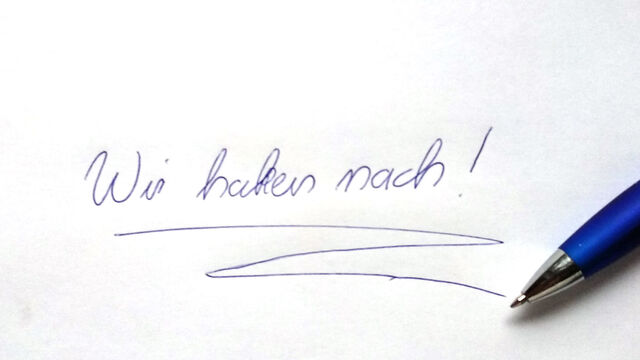 Wir haken nach!